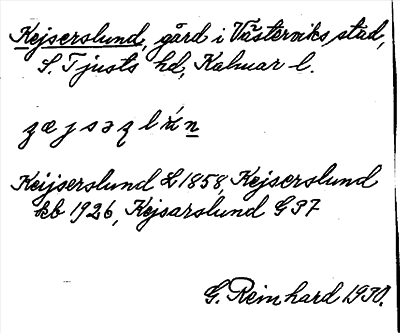 Kejserslund, gård i Västerviks stad,
S. Tjusts hd, Kalmar l.
Keijserslund L 1858, Kejserslund
kb 1926, Kejsarslund G 37
G. Reinhard 1930.